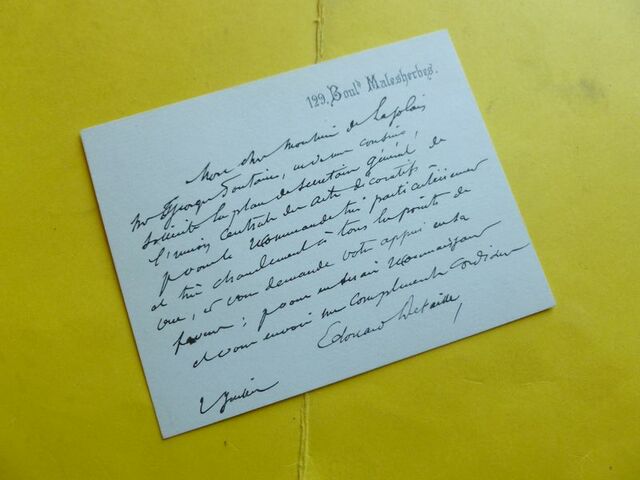 129, Boulᵈ Malesherbes.
Mon cher Moulin de Laplais
Mr Georges Fontaine, un de mes cousins,
sollicite la place de secrétaire général de
l'union Centrale des arts décoratifs -
je vous le recommande très particulièrement
et très chaudement à tous les points de
vue, et vous demande votre appui en sa
faveur; je vous en serai reconnaissant
et vous envoie mes compliments cordiaux
Edouard Detaille,
2 Janvier